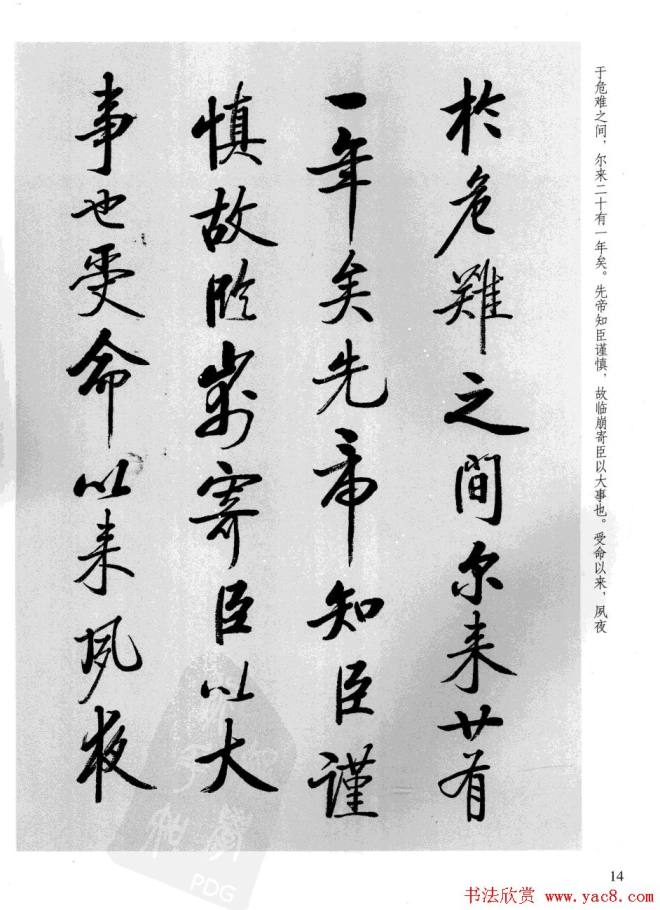 于危难之间，尔来二十有一年矣。先帝知臣谨慎，故临崩寄臣以大事也。受命以来，夙夜
於危難之間尔来廿有
一年矣先帝知臣謹
慎故臨崩寄臣以大
事也受命以来夙夜
PDG
14
书法欣赏 www.yac8.com